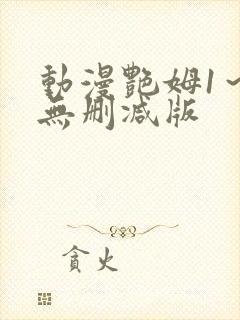 動漫艷姆1～
無刪减版
貪火